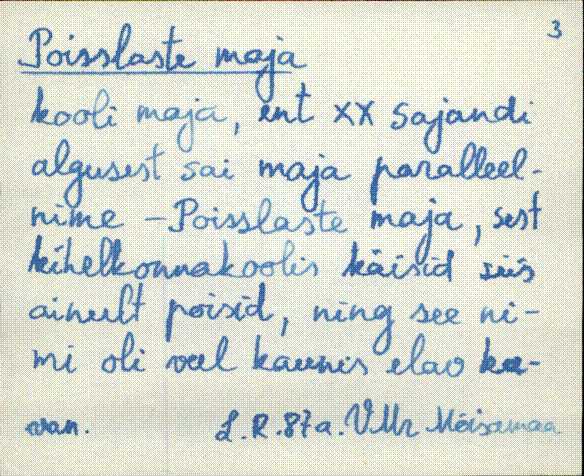 3
Poisslaste maja
kooli maja, ent XX sajandi
algusest sai maja paralleel-
nime - Poisslaste maja, sest
kihelkonnakoolis käisid siis
ainult poisid, ning see ni-
mi oli veel kaunis elav ka-
van. L.R. 87a. VMr Mõisamaa